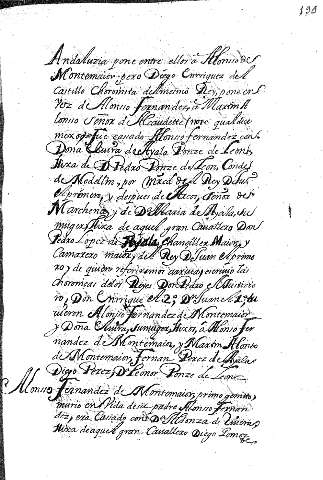 199
Andaluzia pone entre ellos à Alonso de
Montemaior, pero Diego Enrriquez del
Castillo Choronista del mismo Rey, pone en
Vez de Alonso Fernandez, à Martin A
lonso Señor de Alcaudete
fue casado Alonso fernandez con
Doña Elvira de Ayala Ponze de Leon,
hixa de D. Pedro Ponze de Leon, Conde
de Medellin, por mrd del Rey D. Jua
el primero, y despues de Arcos, Señor de
Marchena, y de Dª Maria de Ayala, su
muger, hixa de aquel gran Cavallero Don
Pedro Lopez de Ayala Chanziller Maior, y
Camarero maior, del Rey D. Juan el prime
ro, y de quien referiremos escriuio las
Choronicas de los Reyes Don Pedro el Justicie
ro, Don Enrrique el 2º Dn Juan el 1º tu
uieron Alonso Fernandez de Montemaior
y Doña Elvira, su muger, hixos, à Alonso Fer
nandez de Montemaior, y Martin Alonso
de Montemaior, Fernan Perez de Ayala
Diego Perez, Dª Leonor Ponze de Leon
Alonso Fernandez de Montemaior, primo genito,
murio en Vida de su padre Alonso Fernan
dez, era Casado con Dª Aldonza de
hixa de aquel gran Cavallero Diego Lopez de